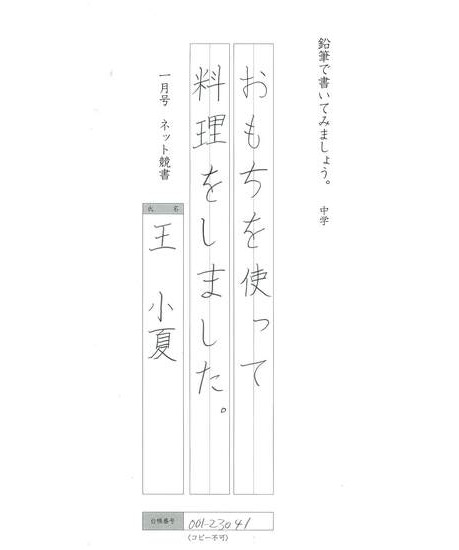 鉛筆で書いてみましょう。 中学
おもちを使って
料理をしました。
一月号 ネット競書
氏 名
王 小夏
台帳番号 001-23041
(コピー不可)